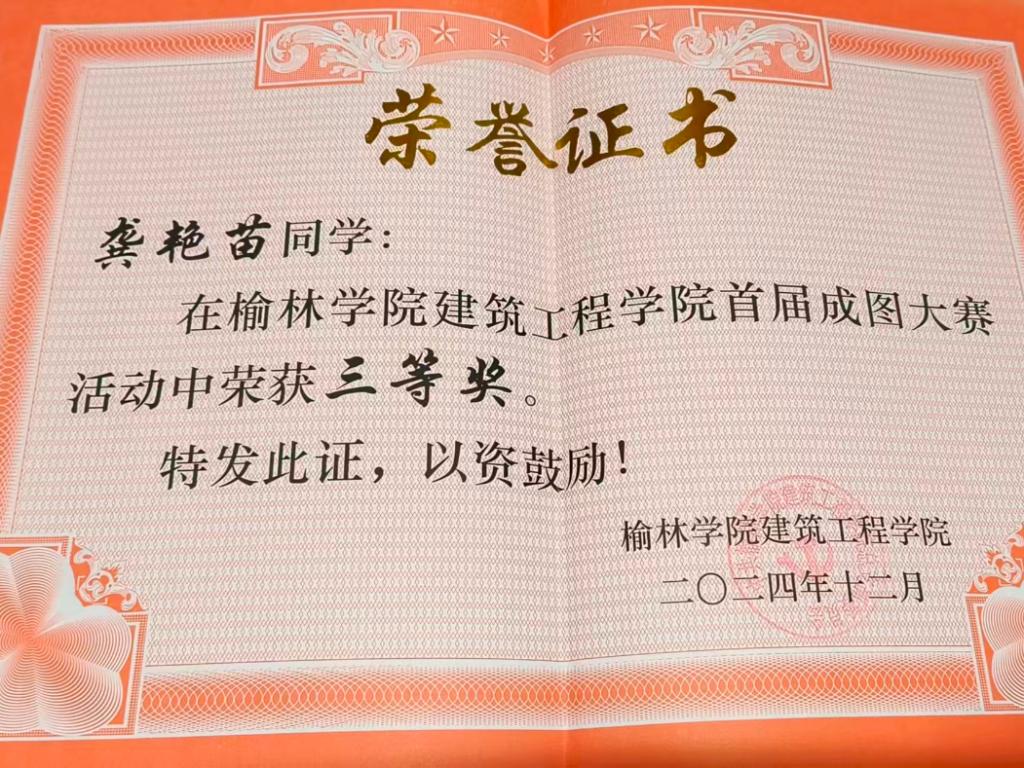 荣誉证书
龚艳苗同学：
在榆林学院建筑工程学院首届成图大赛
活动中荣获三等奖。
特发此证，以资鼓励！
榆林学院建筑工程学院
二〇二四年十二月